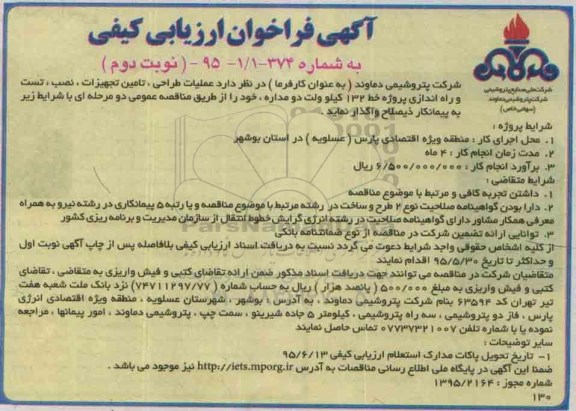 آگهی فراخوان ارزیابی کیفی
به شماره ۳۷۴-۱/۱- ۹۵ -( نوبت دوم )
شرکت ملی صنایع پتروشیمی
شرکت پتروشیمی دماوند
(سهامی خاص)
شرکت پتروشیمی دماوند ( به عنوان کارفرما ) در نظر دارد عملیات طراحی ، تامین تجهیزات ، نصب ، تست
و راه اندازی پروژه خط ۱۳۲ کیلو ولت دو مداره ، خود را از طریق مناقصه عمومی دو مرحله ای با شرایط زیر
به پیمانکار ذیصلاح واگذار نماید .
شرایط پروژه :
۱. محل اجرای کار : منطقه ویژه اقتصادی پارس ( عسلویه ) در استان بوشهر
۲. مدت زمان انجام کار : ۴ ماه
۳. برآورد انجام کار : ۶/۵۰۰/۰۰۰/۰۰۰ ریال
شرایط متقاضی :
۱. داشتن تجربه کافی و مرتبط با موضوع مناقصه
۲. دارا بودن گواهینامه صلاحیت نوع ۲ طرح و ساخت در رشته مرتبط با موضوع مناقصه و یا رتبه ۵ پیمانکاری در رشته نیرو به همراه
معرفی همکار مشاور دارای گواهینامه صلاحیت در رشته انرژی گرایش خطوط انتقال از سازمان مدیریت و برنامه ریزی کشور
۳. توانایی ارائه تضمین شرکت در مناقصه از نوع ضمانتنامه بانکی
از کلیه اشخاص حقوقی واجد شرایط دعوت می گردد نسبت به دریافت اسناد ارزیابی کیفی بلافاصله پس از چاپ آگهی نوبت اول
و حداکثر تا تاریخ ۹۵/۵/۳۰ اقدام نمایند
متقاضیان شرکت در مناقصه می توانند جهت دریافت اسناد مذکور ضمن ارائه تقاضای کتبی و فیش واریزی به متقاضی ، تقاضای
کتبی و فیش واریزی به مبلغ ۵۰۰/۰۰۰ ( پانصد هزار ) ریال به حساب شماره ( ۷۴۷۱۱۲۹۷/۷۷ ) نزد بانک ملت شعبه هفت
تیر تهران کد ۶۳۵۹۴ بنام شرکت پتروشیمی دماوند ، به آدرس : بوشهر ، شهرستان عسلویه ، منطقه ویژه اقتصادی انرژی
پارس ، فاز دو پتروشیمی ، سه راه پتروشیمی ، کیلومتر ۵ جاده شیرینو ، سمت چپ ، پتروشیمی دماوند ، امور پیمانها ، مراجعه
نموده یا با شماره تلفن ۰۷۷۳۷۳۲۱۰۰۷ تماس حاصل نمایند
سایر توضیحات :
۱- تاریخ تحویل پاکات مدارک استعلام ارزیابی کیفی ۹۵/۶/۱۳
ضمنا این آگهی در پایگاه ملی اطلاع رسانی مناقصات به آدرس http://iets.mporg.ir نیز موجود می باشد .
شماره مجوز : ۱۳۹۵/۲۱۶۴
۱۳۰